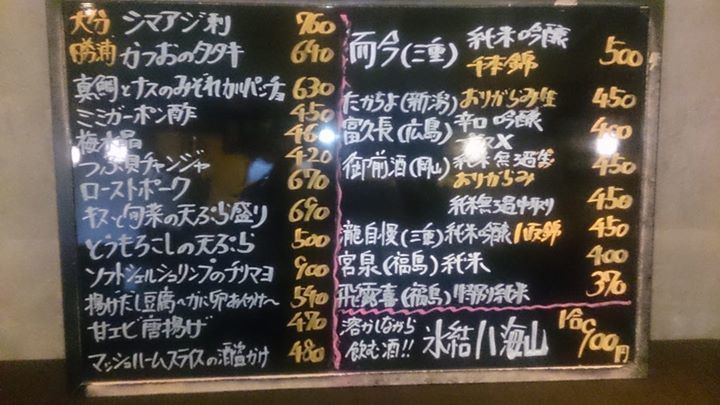 大分 シマアジ刺 760
勝浦 かつおのタタキ 640
真鯛とナスのみぞれカルパッチョ 630
ミニガーポン酢 450
梅水晶 460
つぶ貝チャンジャ 420
ローストポーク 670
キスと旬菜の天ぷら盛り 690
とうもろこしの天ぷら 500
ソフトシェルシュリンプのチリマヨ 900
揚げだし豆腐〜かに卵あんかけ〜 590
甘エビ唐揚げ 470
マッシュルームスライスの酒盗かけ 480
而今(三重) 純米吟醸 500
千本錦
たかちよ(新潟) おりがらみ生 450
富久長(広島) 辛口 吟醸 400
御前酒(岡山) 純米無濾過生 450
おりがらみ
純米無濾過中取り 450
瀧自慢(三重) 純米吟醸 八反錦 450
宮泉(福島) 純米 400
飛露喜(福島) 特別純米 390
溶かしながら
飲む酒!! 氷結八海山 1合 900円